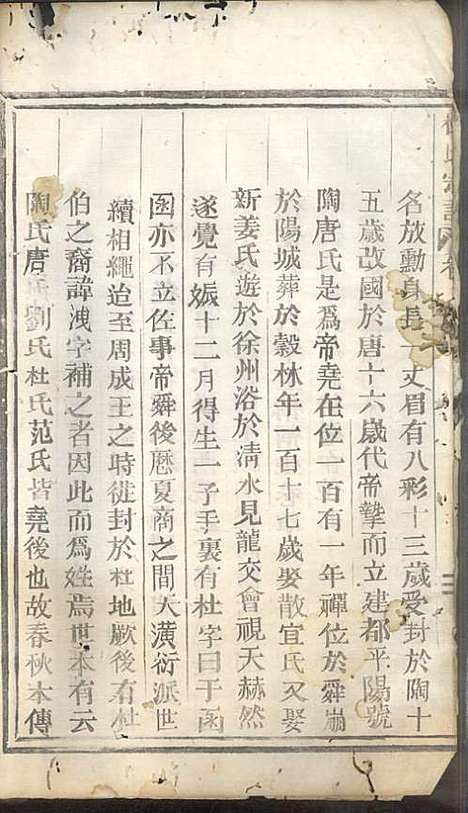 名放勳身長丈眉有八彩十三歲受封於陶十
五歲改國於唐十六歲代帝摯而立建都平陽號
陶唐氏是爲帝堯在位一百有一年禪位於舜崩
於陽城葬於穀林年一百十七歲娶散宜氏又娶
新姜氏遊於徐州浴於清水見龍交會視天赫然
遂覺有娠十二月得生一子手裏有杜字曰于函
函亦不立佐事帝舜後厯夏商之間天潢衍派世
續相繩迨至周成王之時徙封於杜地厥後有杜
伯之裔諱洩字補之者因此而爲姓焉世本有云
陶氏唐氏劉氏杜氏范氏皆堯後也故春秋本傳